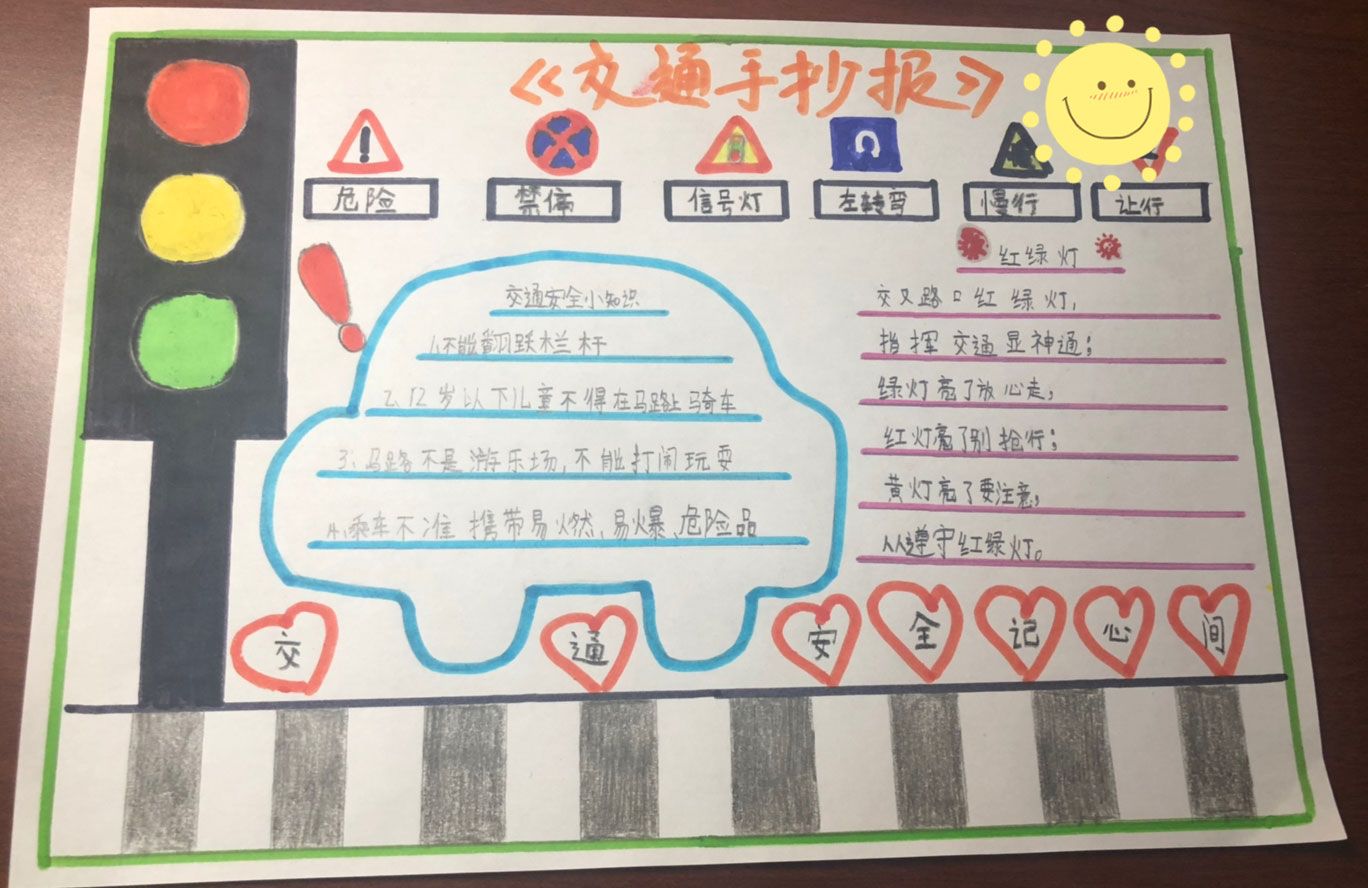 《交通手抄报》
危险 禁停 信号灯 左转弯 慢行 让行
交通安全小知识
1.不能翻跃栏杆
2、12岁以下儿童不得在马路上骑车
3、马路不是游乐场,不能打闹玩耍
4、乘车不准携带易燃、易爆、危险品
红绿灯
交叉路口红绿灯,
指挥交通显神通;
绿灯亮了放心走,
红灯亮了别抢行;
黄灯亮了要注意,
人人遵守红绿灯。
交通安全记心间